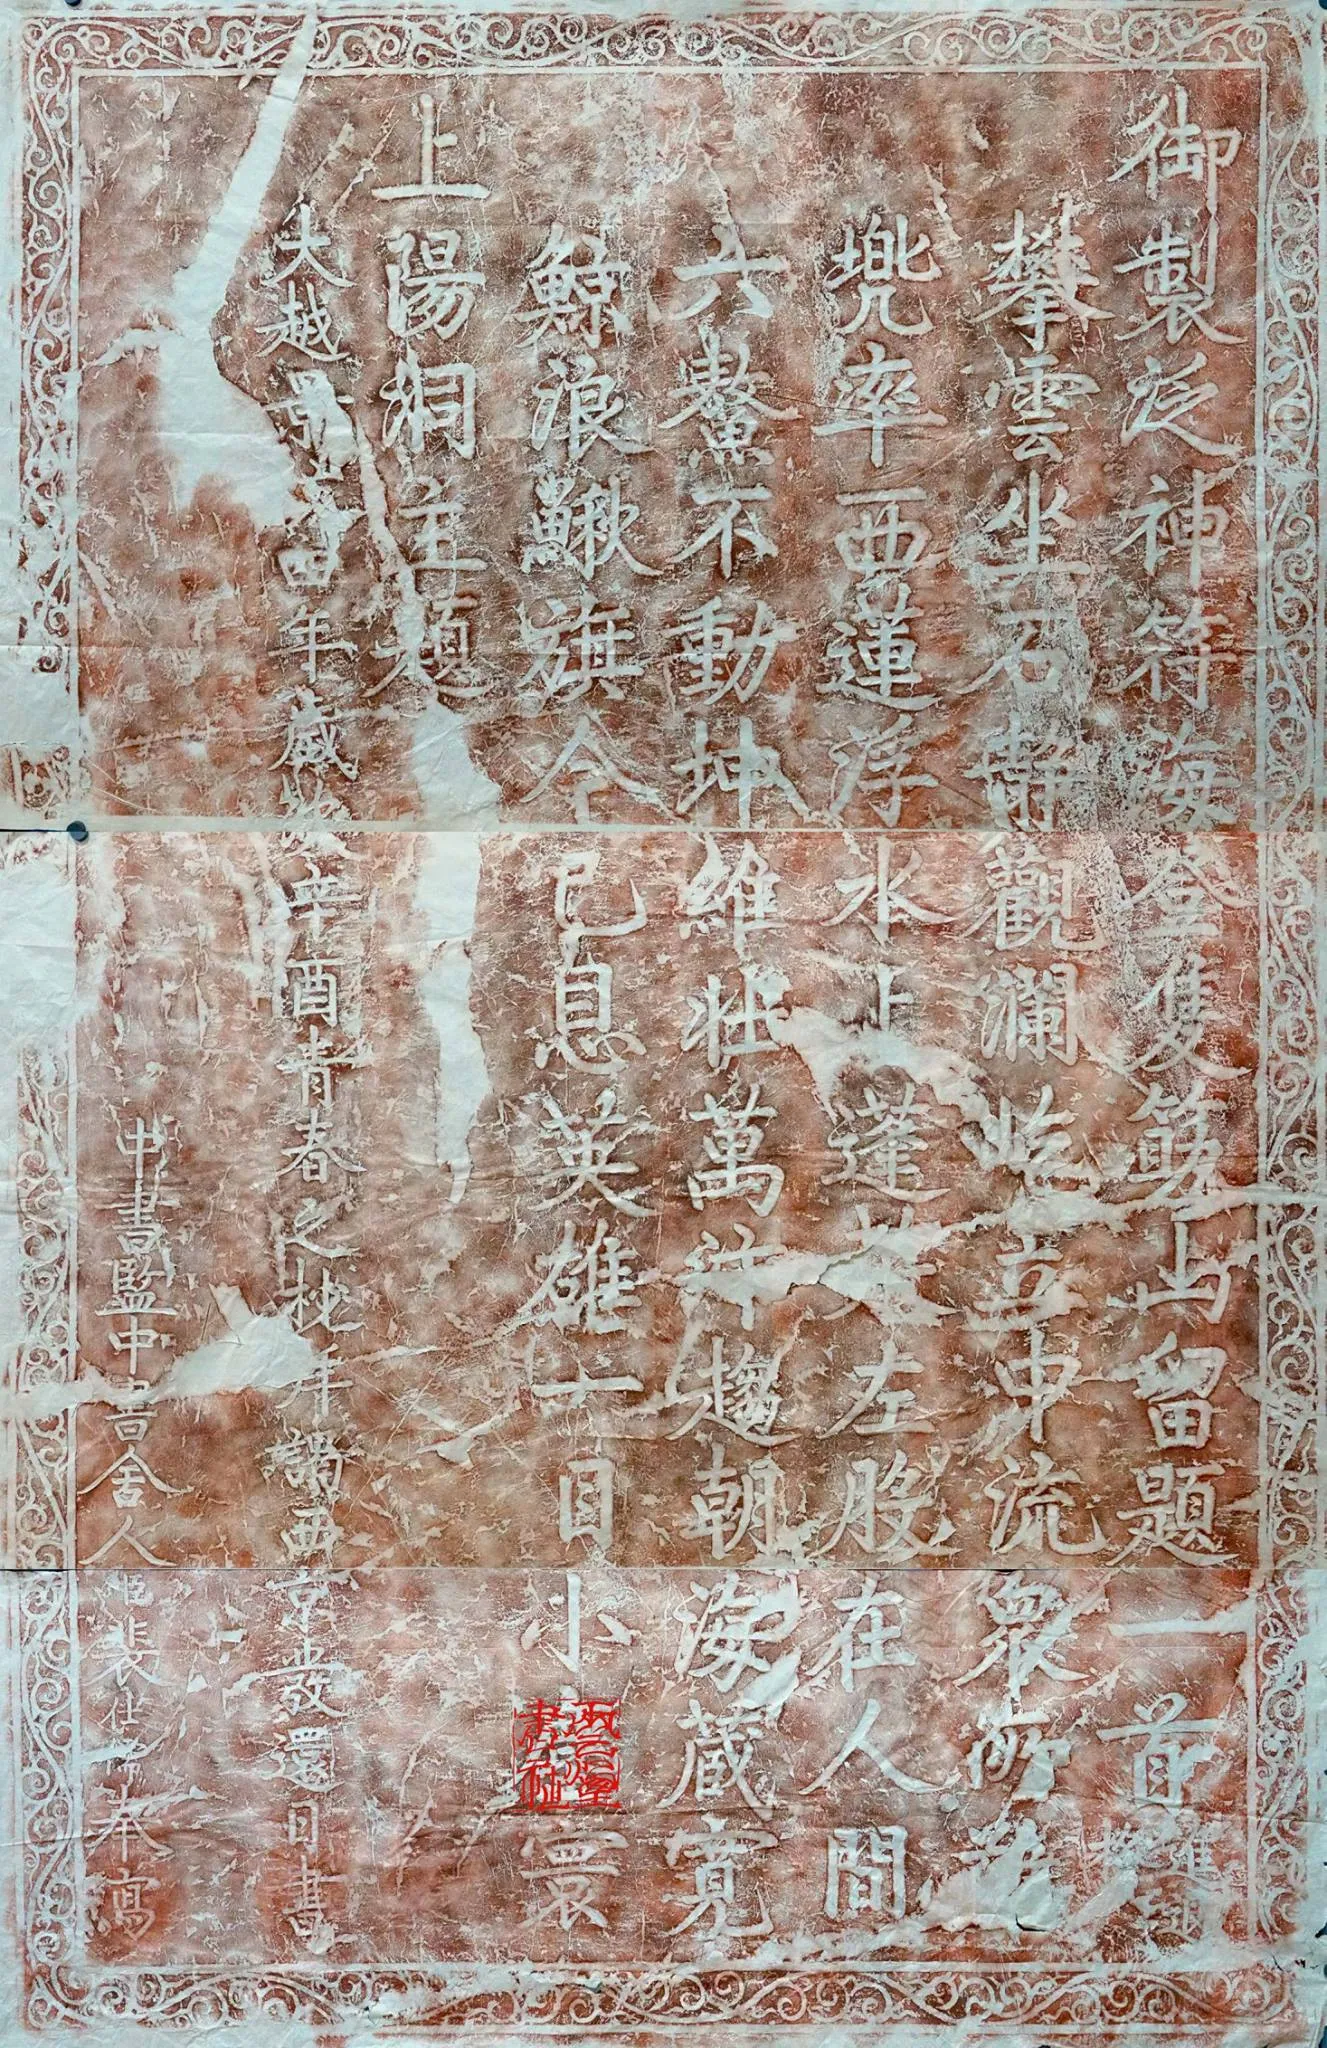 御製泛神符海登隻筯山留題一首
攀雲坐石觀瀾屹立中流衆所難
兜率西蓮浮水上蓬萊左股在人間
六鰲不動坤維壯萬派趨朝海藏寬
鯨浪鰍旗今已息英雄目小寰
上陽洞主題
大越景統四年歲次辛酉青春之杪拜謁西京發還日書
中書監中書舍人臣裴仕奉寫